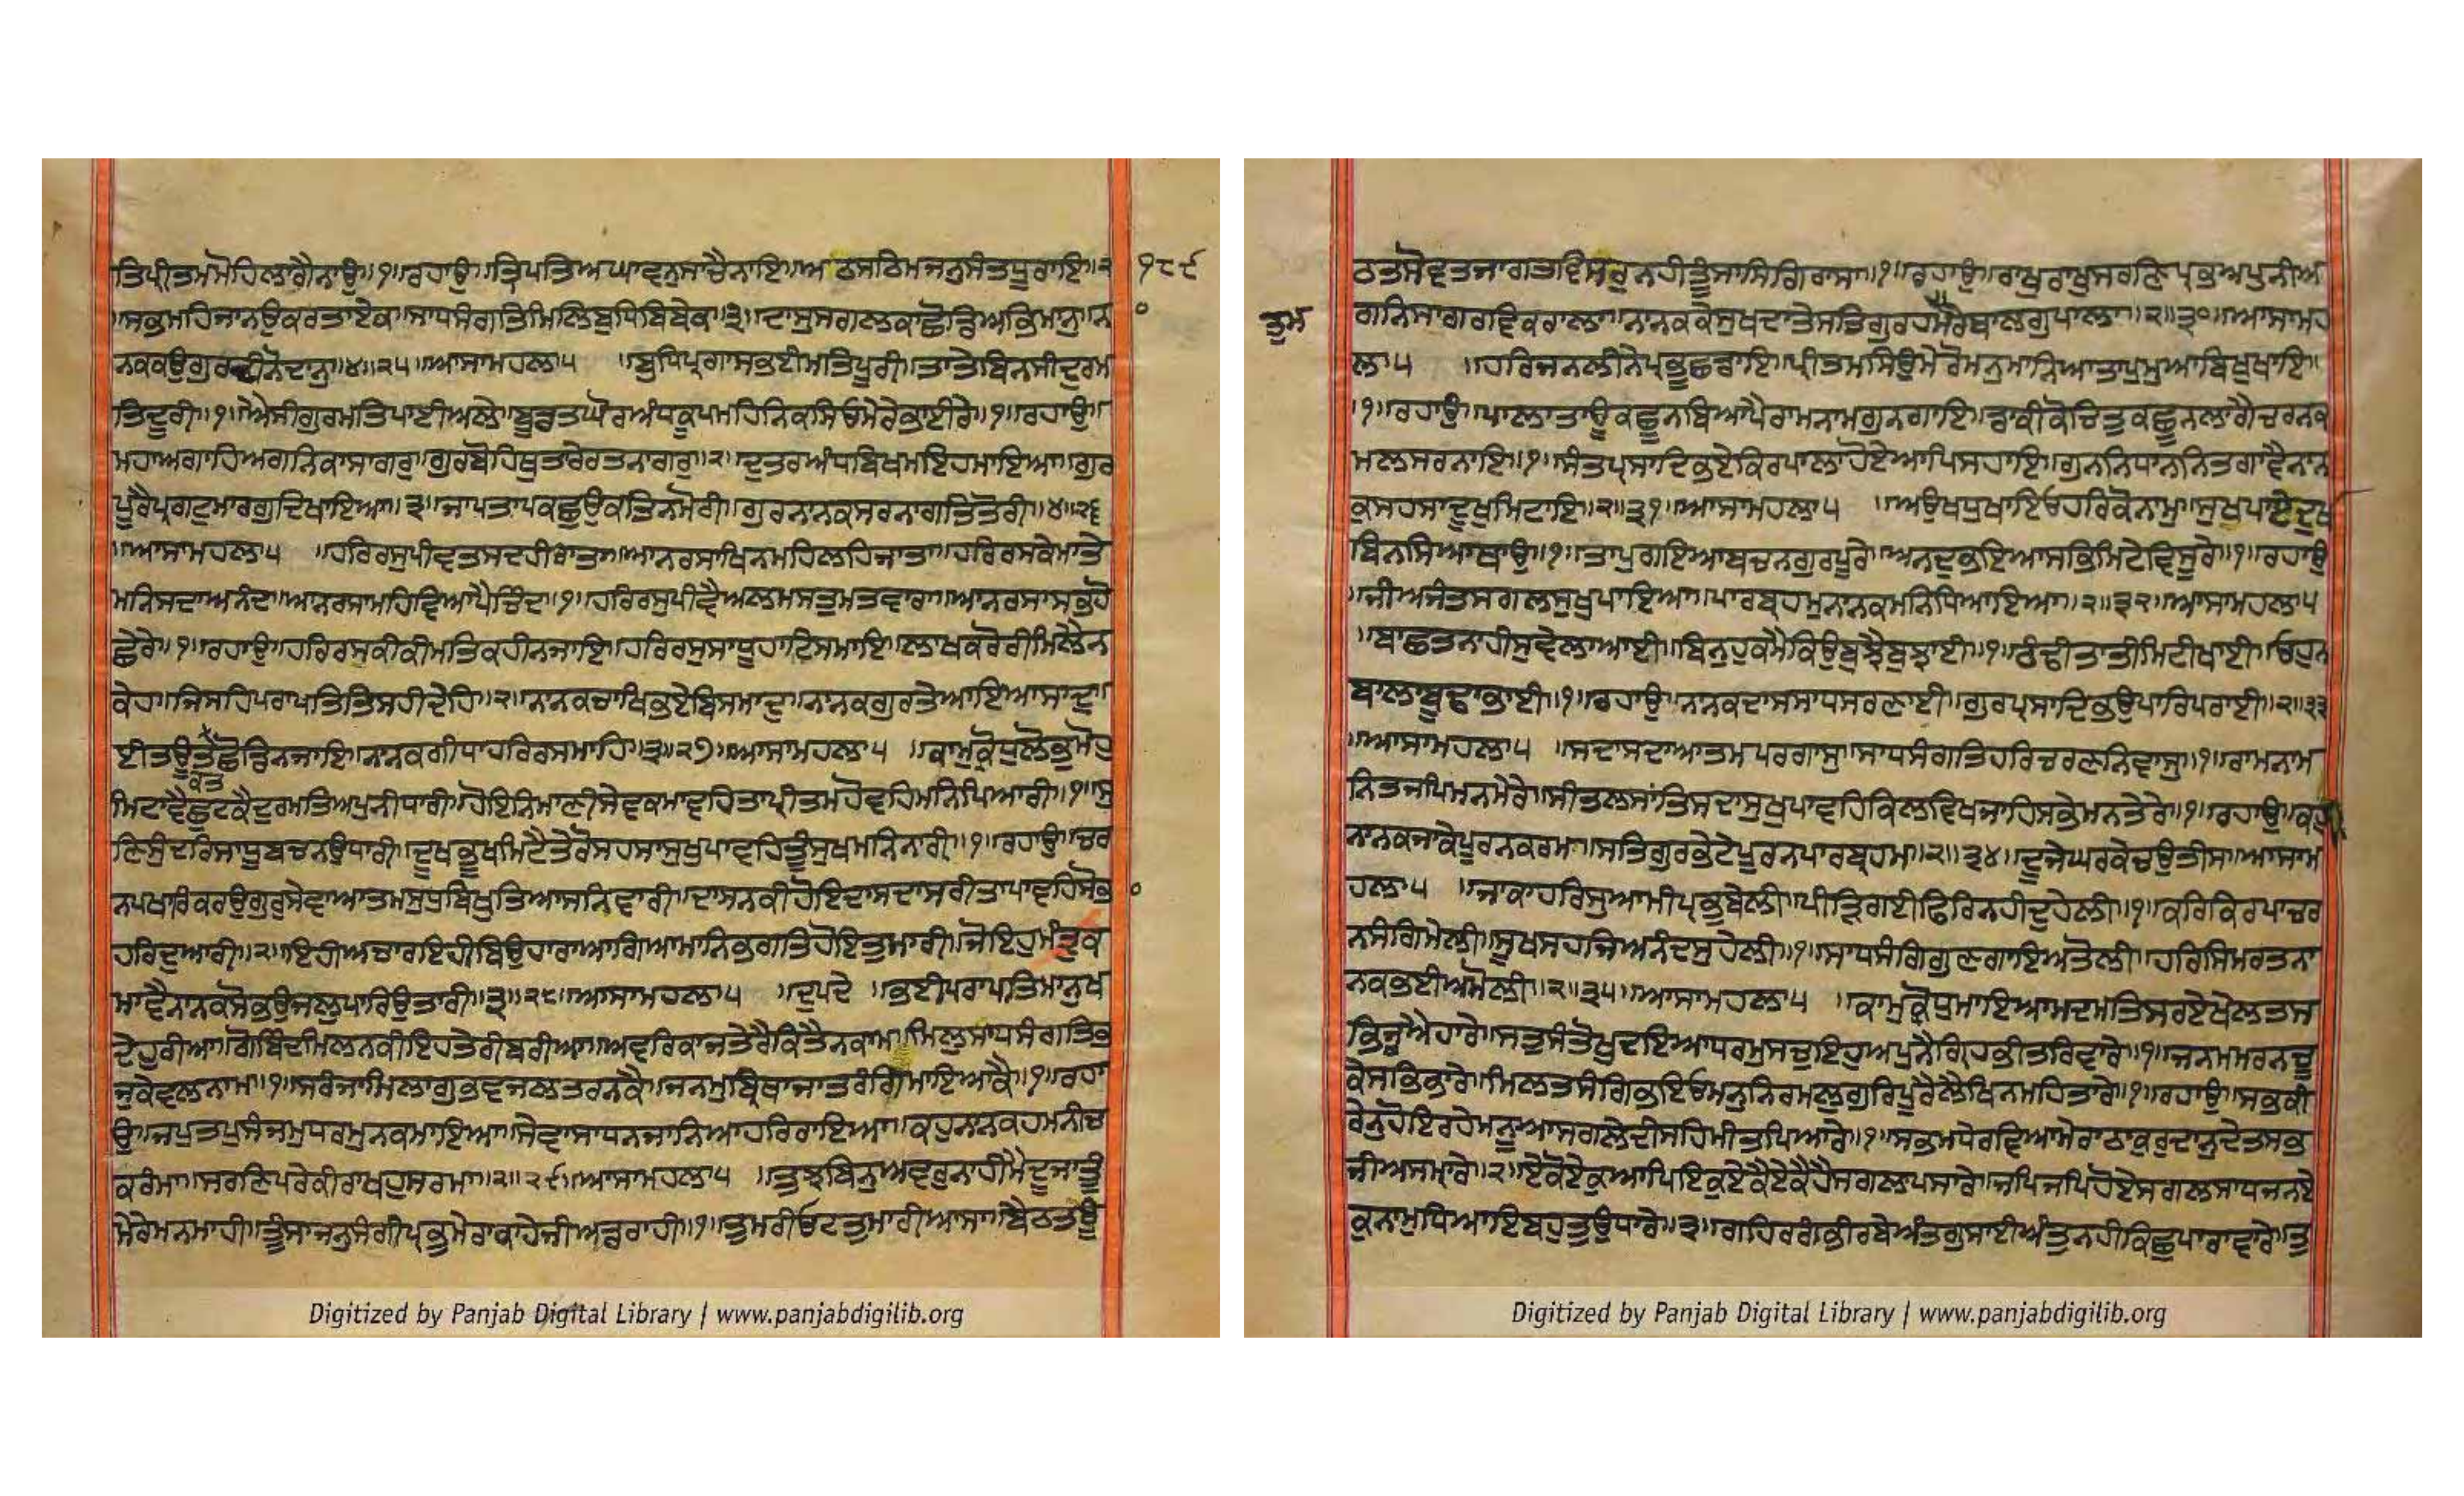 ਤਿਪ੍ਰੀਤਮਮੋਹਿਲਾਗੈਨਾਉ॥੧॥ਰਹਾਉ॥ਤ੍ਰਿਪਤਿਅਘਾਵਨੁਸਾਚੈਨਾਇ॥ਅਠਸਠਿਮਜਨੁਸੰਤਧੂਰਾਇ॥੨ ੧੮੯
॥ਸਭਮਹਿਜਾਨਉਕਰਤਾਏਕ॥ਸਾਧਸੰਗਤਿਮਿਲਿਬੁਧਿਬਿਬੇਕ॥੩॥ਦਾਸੁਸਗਲਕਾਛੋਡਿਅਭਿਮਾਨੁ॥ਨ
ਨਕਕਉਗੁਰਦੀਨੋਦਾਨੁ॥੪॥੨੫॥ਆਸਾਮਹਲਾ੫ ॥ਬੁਧਿਪ੍ਰਗਾਸਭਈਮਤਿਪੂਰੀ॥ਤਾਤੇਬਿਨਸੀਦੁਰਮ
ਤਿਦੂਰੀ॥੧॥ਐਸੀਗੁਰਮਤਿਪਾਈਅਲੇ॥ਬੂਡਤਘੋਰਅੰਧਕੂਪਮਹਿਨਿਕਸਿਓਮੇਰੇਭਾਈਰੇ॥੧॥ਰਹਾਉ॥
ਮਹਾਅਗਾਹਿਅਗਨਿਕਾਸਾਗਰੁ॥ਗੁਰਬੋਹਿਥੁਤਾਰੇਰਤਨਾਗਰੁ॥੨॥ਦੁਤਰਅੰਧਬਿਖਮਇਹਮਾਇਆ॥ਗੁਰ
ਪੂਰੈਪ੍ਰਗਟੁਮਾਰਗੁਦਿਖਾਇਆ॥੩॥ਜਾਪਤਾਪਕਛੁਉਕਤਿਨਮੋਰੀ॥ਗੁਰਨਾਨਕਸਰਨਾਗਤਿਤੋਰੀ॥੪॥੨੬
॥ਆਸਾਮਹਲਾ੫ ॥ਹਰਿਰਸੁਪੀਵਤਸਦਹੀਰਾਤਾ॥ਆਨਰਸਾਖਿਨਮਹਿਲਹਿਜਾਤਾ॥ਹਰਿਰਸਕੇਮਾਤੇ
ਮਨਿਸਦਾਅਨੰਦ॥ਆਨਰਸਾਮਹਿਵਿਆਪੈਚਿੰਦ॥੧॥ਹਰਿਰਸੁਪੀਵੈਅਲਮਸਤੁਮਤਵਾਰਾ॥ਆਨਰਸਾਸਭਿਹੋ
ਛੇਰੇ॥੧॥ਰਹਾਉ॥ਹਰਿਰਸਕੀਕੀਮਤਿਕਹੀਨਜਾਇ॥ਹਰਿਰਸੁਸਾਧੂਹਾਟਿਸਮਾਇ॥ਲਾਖਕਰੋਰੀਮਿਲੈਨ
ਕੇਹ॥ਜਿਸਹਿਪਰਾਪਤਿਤਿਸਹੀਦੇਹਿ॥੨॥ਨਾਨਕਚਾਖਿਭਏਬਿਸਮਾਦੁ॥ਨਾਨਕਗੁਰਤੇਆਇਆਸਾਦੁ॥
ਈਤਊਤਛੋਡਿਨਜਾਇ॥ਨਾਨਕਗੀਧਾਹਰਿਰਸਮਾਹਿ॥੩॥੨੭॥ਆਸਾਮਹਲਾ੫ ॥ਕਾਮੁਕ੍ਰੋਧੁਲੋਭੁਮੋਹੁ
ਕਤ
ਮਿਟਾਵੈਛੁਟਕੈਦੁਰਮਤਿਅਪੁਨੀਧਾਰੀ॥ਹੋਇਨਿਮਾਣੀਸੇਵਕਮਾਵਹਿਤਾਪ੍ਰੀਤਮਹੋਵਹਿਮਨਿਪਿਆਰੀ॥੧॥ਸੁ
ਣਿਸੁੰਦਰਿਸਾਧੂਬਚਨਉਧਾਰੀ॥ਦੂਖਭੂਖਮਿਟੈਤੇਰੋਸਹਸਾਸੁਖੁਪਾਵਹਿਤੂੰਸੁਖਮਨਿਨਾਰੀ॥੧॥ਰਹਾਉ॥ਚਰ
ਨਪਖਾਰਿਕਰਉਗੁਰੁਸੇਵਾਆਤਮਸੁਧੁਬਿਖੁਤਿਆਸਨਿਵਾਰੀ॥ਦਾਸਨਕੀਹੋਇਦਾਸਦਾਸਰੀਤਾਪਾਵਹਿਸੋਭ
ਹਰਿਦੁਆਰੀ॥੨॥ਇਹੀਅਚਾਰਇਹੀਬਿਉਹਾਰਾਆਗਿਆਮਾਨਿਭਗਤਿਹੋਇਤੁਮਾਰੀ॥ਜੋਇਹੁਮੰਤ੍ਰੁਕ
ਮਾਵੈਨਾਨਕਸੋਭਉਜਲੁਪਾਰਿਉਤਾਰੀ॥੩॥੨੮॥ਆਸਾਮਹਲਾ੫ ॥ਦੁਪਦੇ ॥ਭਈਪਰਾਪਤਿਮਾਨੁਖ
ਦੇਹੁਰੀਆ॥ਗੋਬਿੰਦਮਿਲਨਕੀਇਹਤੇਰੀਬਰੀਆ॥ਅਵਰਿਕਾਜਤੇਰੈਕਿਤੈਨਕਾਮ॥ਮਿਲੁਸਾਧਸੰਗਤਿਭ
ਜੁਕੇਵਲਨਾਮ॥੧॥ਸਰੰਜਾਮਿਲਾਗੁਭਵਜਲਤਰਨਕੈ॥ਜਨਮੁਬ੍ਰਿਥਾਜਾਤਰੰਗਿਮਾਇਆਕੈ॥੧॥ਰਹਾ
ਉ॥ਜਪੁਤਪੁਸੰਜਮੁਧਰਮੁਨਕਮਾਇਆ॥ਸੇਵਾਸਾਧਨਜਾਨਿਆਹਰਿਰਾਇਆ॥ਕਹੁਨਾਨਕਹਮਨੀਚ
ਕਰੰਮਾ॥ਸਰਣਿਪਰੇਕੀਰਾਖਹੁਸਰਮਾ॥੨॥੨੯॥ਆਸਾਮਹਲਾ੫ ॥ਤੁਝਬਿਨੁਅਵਰੁਨਾਹੀਮੈਦੂਜਾਤੂੰ
ਮੇਰੇਮਨਮਾਹੀ॥ਤੂੰਸਾਜਨੁਸੰਗੀਪ੍ਰਭੁਮੇਰਾਕਾਹੇਜੀਅਡਰਾਹੀ॥੧॥ਤੁਮਰੀਓਟਤੁਮਾਰੀਆਸਾ॥ਬੈਠਤਊ
ਠਤਸੋਵਤਜਾਗਤਵਿਸਰੁਨਹੀਤੂੰਸਾਸਿਗਿਰਾਸਾ॥੧॥ਰਹਾਉ॥ਰਾਖੁਰਾਖੁਸਰਣਿਪ੍ਰਭਅਪੁਨੀਅ
ਤੁਮ ਗਨਿਸਾਗਰਵਿਕਰਾਲਾ॥ਨਾਨਕਕੇਸੁਖਦਾਤੇਸਤਿਗੁਰਹਮਰੇਬਾਲਗੁਪਾਲਾ॥੨॥੩੦॥ਆਸਾਮਹ
ਲਾ੫ ॥ਹਰਿਜਨਲੀਨੇਪ੍ਰਭੂਛਡਾਇ॥ਪ੍ਰੀਤਮਸਿਉਮੇਰੋਮਨੁਮਾਨਿਆਤਾਪੁਮੁਆਬਿਖੁਖਾਇ॥
।੧॥ਰਹਾਉ॥ਪਾਲਾਤਾਊਕਛੂਨਬਿਆਪੈਰਾਮਨਾਮਗੁਨਗਾਇ॥ਡਾਕੀਕੋਚਿਤੁਕਛੂਨਲਾਗੈਚਰਨਕ
ਮਲਸਰਨਾਇ॥੧॥ਸੰਤਪ੍ਰਸਾਦਿਭਏਕਿਰਪਾਲਾਹੋਏਆਪਿਸਹਾਇ॥ਗੁਨਨਿਧਾਨਨਿਤਗਾਵੈਨਾਨ
ਕੁਸਹਸਾਦੁਖੁਮਿਟਾਇ॥੨॥੩੧॥ਆਸਾਮਹਲਾ੫ ॥ਅਉਖਧੁਖਾਇਓਹਰਿਕੋਨਾਮੁ॥ਸੁਖਪਾਏਦੁਖ
ਬਿਨਸਿਆਥਾਉ॥੧॥ਤਾਪੁਗਇਆਬਚਨਗੁਰਪੂਰੇ॥ਅਨਦੁਭਇਆਸਭਿਮਿਟੇਵਿਸੂਰੇ॥੧॥ਰਹਾਉ
॥ਜੀਅਜੰਤਸਗਲਸੁਖੁਪਾਇਆ॥ਪਾਰਬ੍ਰਹਮੁਨਾਨਕਮਨਿਧਿਆਇਆ॥੨॥੩੨॥ਆਸਾਮਹਲਾ੫
॥ਬਾਛਤਨਾਹੀਸੁਵੇਲਾਆਈ॥ਬਿਨੁਹੁਕਮੈਕਿਉਬੁਝੈਬੁਝਾਈ॥੧॥ਠੰਢੀਤਾਤੀਮਿਟੀਖਾਈ॥ਓਹੁਨ
ਬਾਲਾਬੂਢਾਭਾਈ॥੧॥ਰਹਾਉ॥ਨਾਨਕਦਾਸਸਾਧਸਰਣਾਈ॥ਗੁਰਪ੍ਰਸਾਦਿਭਉਪਾਰਿਪਰਾਈ॥੨॥੩੩
॥ਆਸਾਮਹਲਾ੫ ॥ਸਦਾਸਦਾਆਤਮਪਰਗਾਸੁ॥ਸਾਧਸੰਗਤਿਹਰਿਚਰਣਨਿਵਾਸੁ॥੧॥ਰਾਮਨਾਮ
ਨਿਤਜਪਿਮਨਮੇਰੇ॥ਸੀਤਲਸਾਂਤਿਸਦਾਸੁਖੁਪਾਵਹਿਕਿਲਵਿਖਜਾਹਿਸਭੇਮਨਤੇਰੇ॥੧॥ਰਹਾਉ॥ਕਹੁ
ਨਾਨਕਜਾਕੇਪੂਰਨਕਰਮ॥ਸਤਿਗੁਰਭੇਟੇਪੂਰਨਪਾਰਬ੍ਰਹਮ॥੨॥੩੪॥ਦੂਜੇਘਰਕੇਚਉਤੀਸ॥ਆਸਾਮ
ਹਲਾ੫ ॥ਜਾਕਾਹਰਿਸੁਆਮੀਪ੍ਰਭੁਬੇਲੀ॥ਪੀੜਗਈਫਿਰਿਨਹੀਦੁਹੇਲੀ॥੧॥ਕਰਿਕਿਰਪਾਚਰ
ਨਸੰਗਿਮੇਲੀ॥ਸੂਖਸਹਜਿਅਨੰਦਸੁਹੇਲੀ॥੧॥ਸਾਧਸੰਗਿਗੁਣਗਾਇਅਤੋਲੀ॥ਹਰਿਸਿਮਰਤਨਾ
ਨਕਭਈਅਮੋਲੀ॥੨॥੩੫॥ਆਸਾਮਹਲਾ੫ ॥ਕਾਮੁਕ੍ਰੋਧੁਮਾਇਆਮਦਮਤਿਸਰਏਖੇਲਤਸ
ਭਿਜੂਐਹਾਰੇ॥ਸਤੁਸੰਤੋਖੁਦਇਆਧਰਮੁਸਚੁਇਹੁਅਪੁਨੈਗ੍ਰਿਹਭੀਤਰਿਵਾਰੇ॥੧॥ਜਨਮਮਰਨਚੂ
ਕੇਸਭਿਭਾਰੇ॥ਮਿਲਤਸੰਗਿਭਇਓਮਨੁਨਿਰਮਲੁਗੁਰਿਪੂਰੈਲੈਖਿਨਮਹਿਤਾਰੇ॥੧॥ਰਹਾਉ॥ਸਭਕੀ
ਰੇਨੁਹੋਇਰਹੇਮਨੂਆਸਗਲੇਦੀਸਹਿਮੀਤਪਿਆਰੇ॥੧॥ਸਭਮਧੇਰਵਿਆਮੇਰਾਠਾਕੁਰੁਦਾਨੁਦੇਤਸਭ
ਜੀਅਸਮ੍ਹਾਰੇ॥੨॥ਏਕੋਏਕੁਆਪਿਇਕੁਏਕੈਏਕੈਹੈਸਗਲਾਪਸਾਰੇ॥ਜਪਿਜਪਿਹੋਏਸਗਲਸਾਧਜਨਏ
ਕੁਨਾਮੁਧਿਆਇਬਹੁਤੁਉਧਾਰੇ॥੩॥ਗਹਿਰਗੰਭੀਰਬੇਅੰਤਗੁਸਾਈਅੰਤੁਨਹੀਕਿਛੁਪਾਰਾਵਾਰੇ॥ਤੁ
Digitized by Panjab Digital Library | www.panjabdigilib.org
Digitized by Panjab Digital Library | www.panjabdigilib.org